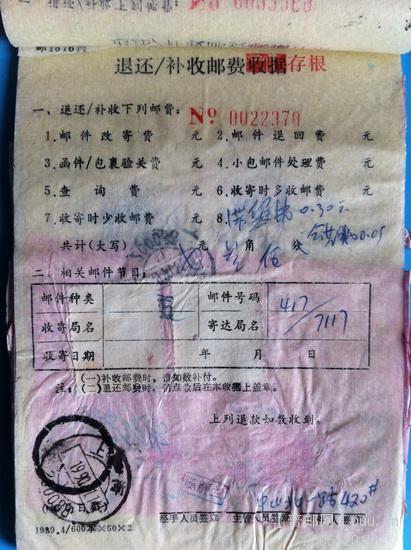 邮1616丙
退还/补收邮费收据存根
一、退还/补收下列邮费：
No 0022370
1.邮件改寄费 元 2.邮件退回费 元
3.函件/包裹验关费 元 4.小包邮件处理费 元
5.查询费 元 6.收寄时多收邮费 元
7.收寄时少收邮费 元 8. 0.30元
0.05
共计(大写) 元 角 分
二、相关邮件节目：
邮件种类 邮件号码 417/7117
收寄局名 寄达局名
收寄日期 年 月 日
注：(一)补收邮费时，请如数补付。
(二)退还邮费时，请点收后在本收据上盖章。
上列退款如数收到。
上海
中山北一路420#
经手人员签章 主管人员签章 人签章
1989.4/600本×50×2